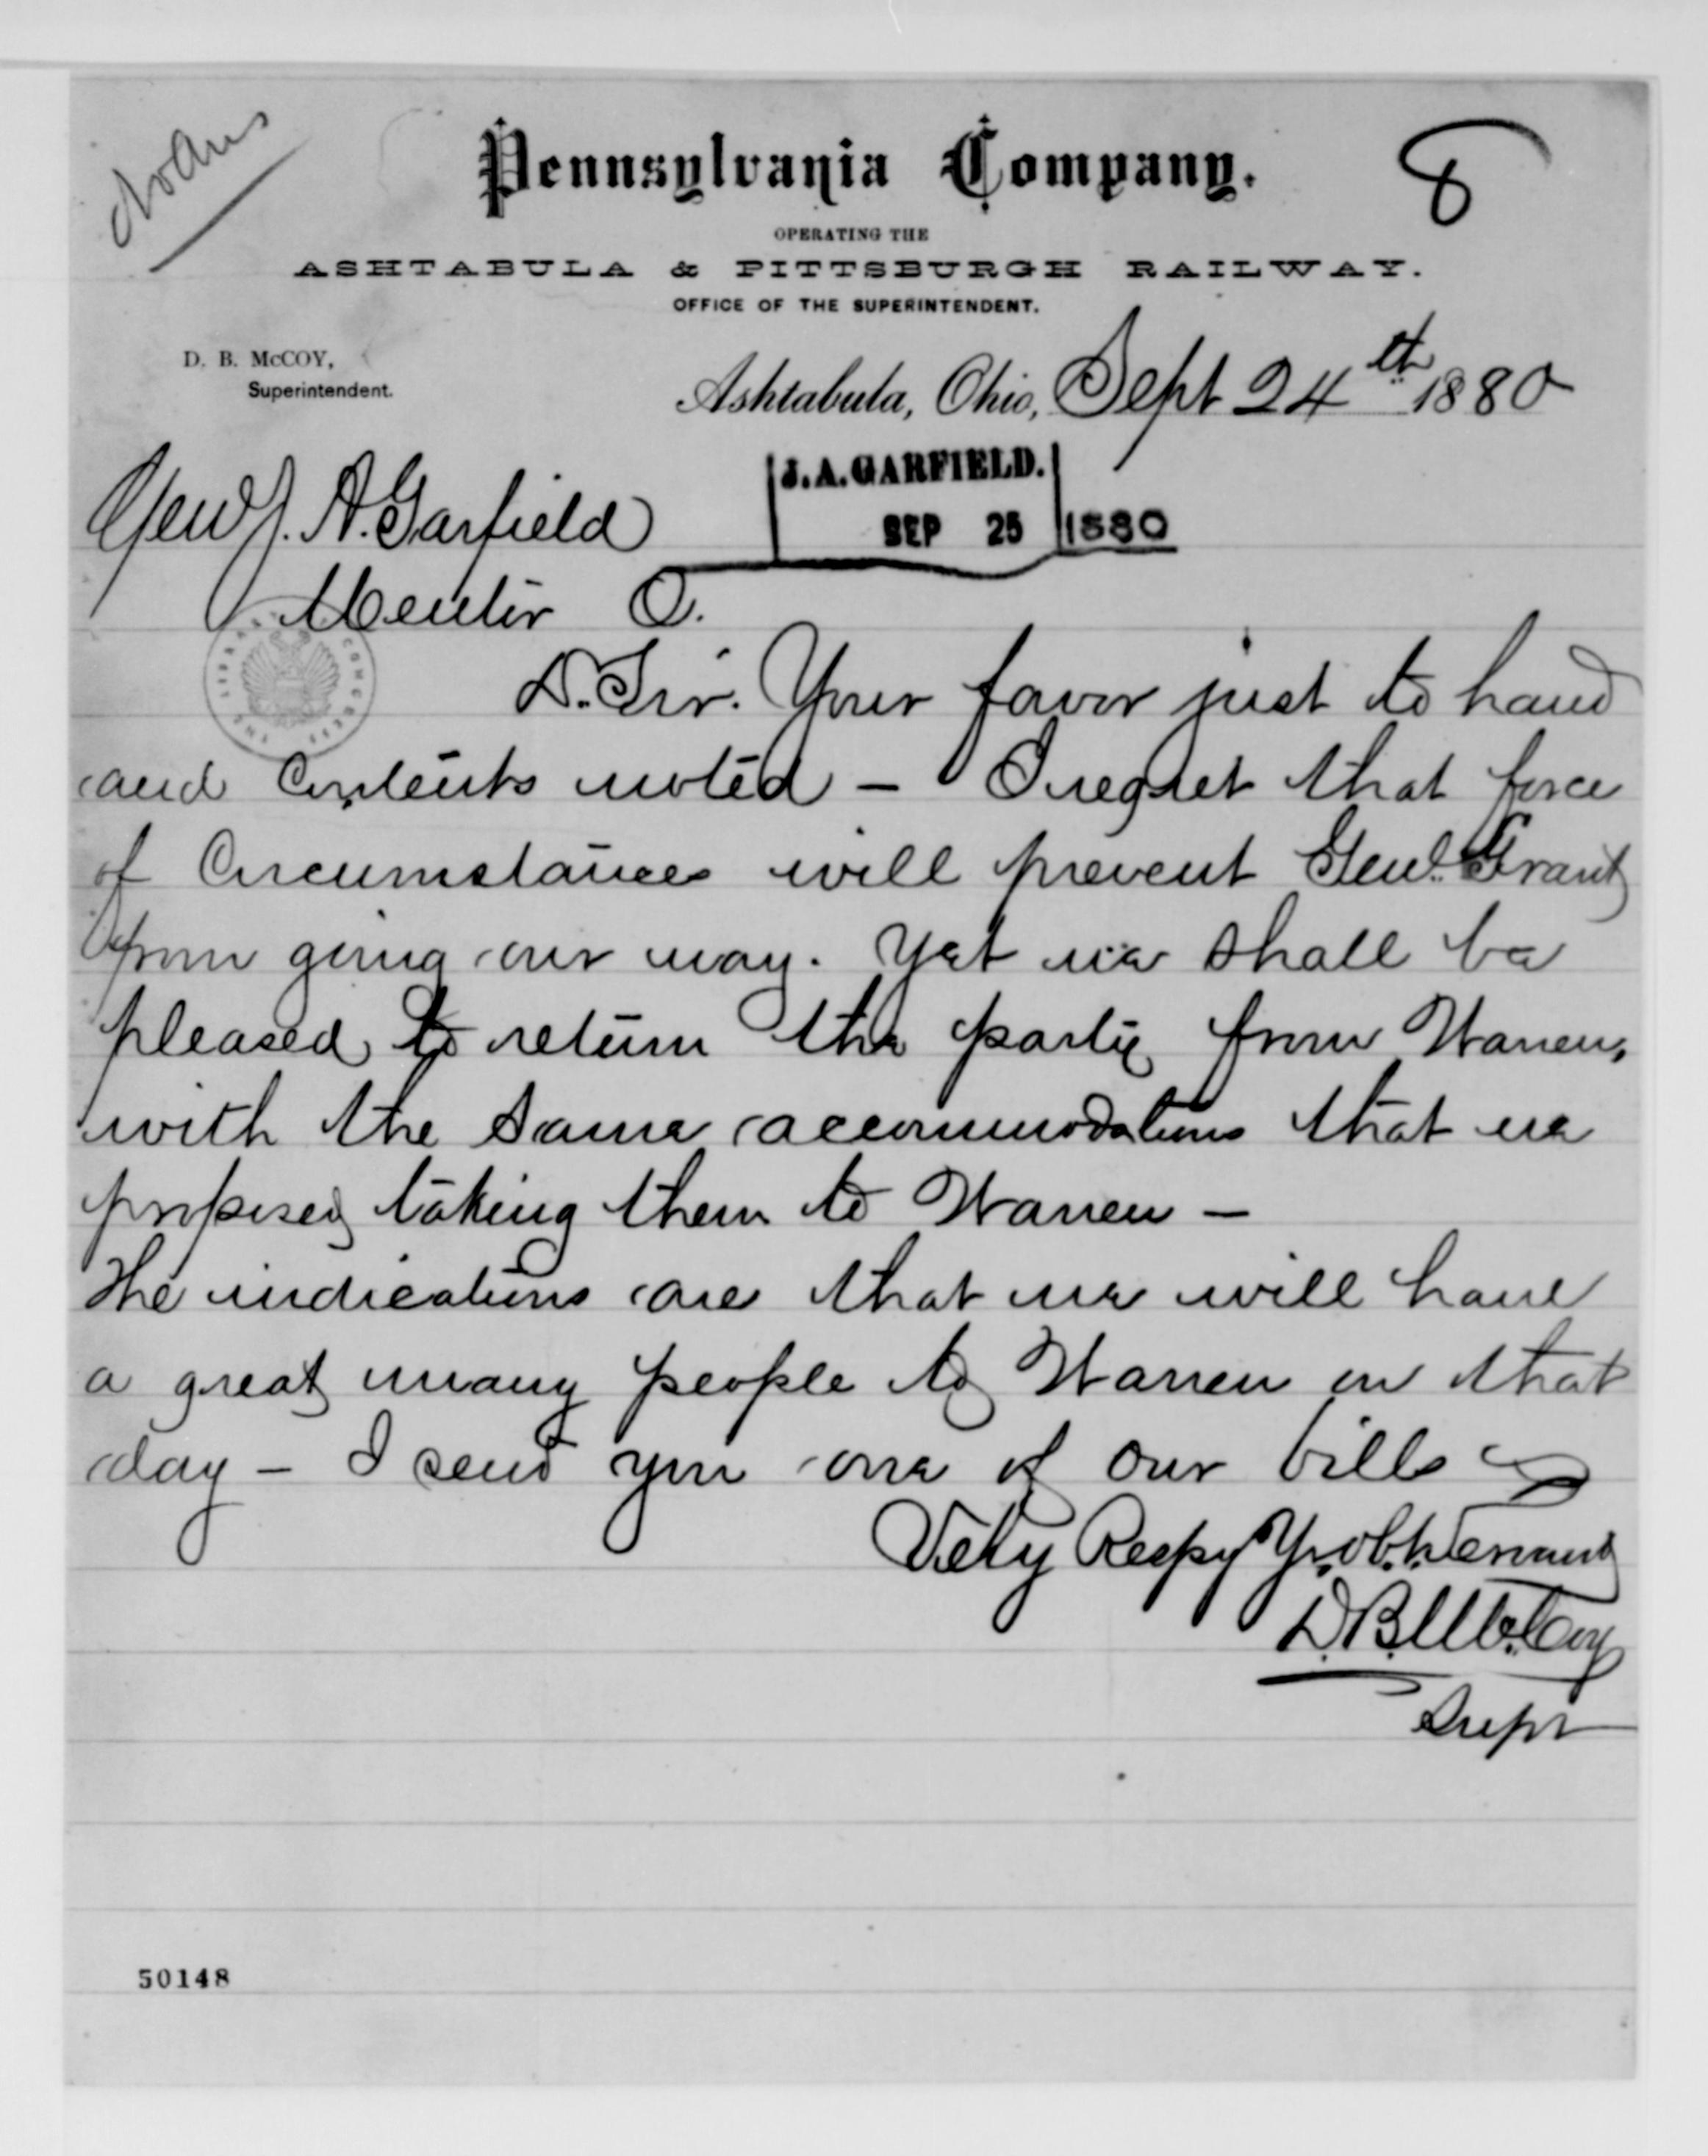 No Ans
8
Pennsylvania Company.
OPERATING THE
ASHTABULA & PITTSBURGH RAILWAY.
OFFICE OF THE SUPERINTENDENT.
D. B. McCOY,
Superintendent.
Ashtabula, Ohio, Sept 24th 1880
J.A.GARFIELD.
SEP 25 1880
Genl J. A. Garfield
Mentor O.
THE LIBRARY OF CONGRESS
D. Sir. Your favor just to hand
and Contents noted – I regret that force
of Circumstances will prevent Genl. Grant
from going our way. Yet we shall be
pleased to return the party from Warren,
with the same accommodations that we
proposed taking them to Warren –
The indications are that we will have
a great many people to Warren on that
day – I send you one of our bills
Very Respy Yr. obt. Servant
D. B. McCoy
Supt
50148